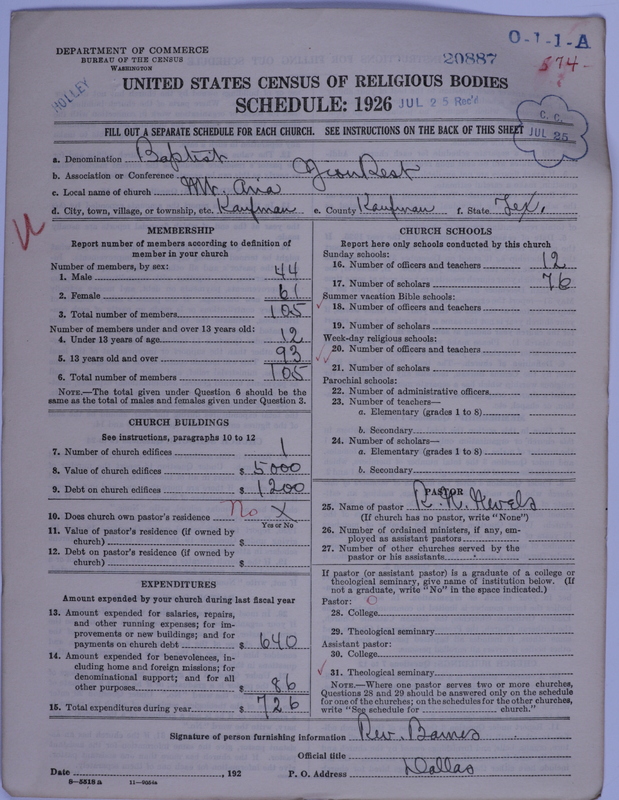 DEPARTMENT OF COMMERCE
BUREAU OF THE CENSUS
WASHINGTON
HOLLEY
20887
O-1-1-A
574-
UNITED STATES CENSUS OF RELIGIOUS BODIES
SCHEDULE: 1926 JUL 25 Rec'd
C. C.
JUL 25
FILL OUT A SEPARATE SCHEDULE FOR EACH CHURCH. SEE INSTRUCTIONS ON THE BACK OF THIS SHEET
a. Denomination Baptist
b. Association or Conference Zion Rest
c. Local name of church Mt. Aria
d. City, town, village, or township, etc. Kaufman e. County Kaufman f. State Tex.
MEMBERSHIP
Report number of members according to definition of
member in your church
Number of members, by sex:
1. Male 44
2. Female 61
3. Total number of members 105
Number of members under and over 13 years old:
4. Under 13 years of age 12
5. 13 years old and over 93
6. Total number of members 105
NOTE.—The total given under Question 6 should be
same as the total of males and females given under Question 3.
CHURCH BUILDINGS
See instructions, paragraphs 10 to 12
7. Number of church edifices 1
8. Value of church edifices $ 5000
9. Debt on church edifices $ 1200
10. Does church own pastor's residence No X
Yes or No
11. Value of pastor's residence (if owned by
church) $
12. Debt on pastor's residence (if owned by
church) $
EXPENDITURES
Amount expended by your church during last fiscal year
13. Amount expended for salaries, repairs,
and other running expenses; for im-
provements or new buildings; and for
payments on church debt $ 640
14. Amount expended for benevolences, in-
cluding home and foreign missions; for
denominational support; and for all
other purposes $ 86
15. Total expenditures during year $ 726
CHURCH SCHOOLS
Report here only schools conducted by this church
Sunday schools:
16. Number of officers and teachers 12
17. Number of scholars 76
Summer vacation Bible schools:
18. Number of officers and teachers
19. Number of scholars
Week-day religious schools:
20. Number of officers and teachers
21. Number of scholars
Parochial schools:
22. Number of administrative officers
23. Number of teachers—
a. Elementary (grades 1 to 8)
b. Secondary
24. Number of scholars—
a. Elementary (grades 1 to 8)
b. Secondary
PASTOR
25. Name of pastor R. N. Nevels
(If church has no pastor, write "None")
26. Number of ordained ministers, if any, em-
ployed as assistant pastors
27. Number of other churches served by the
pastor or his assistants
If pastor (or assistant pastor) is a graduate of a college or
theological seminary, give name of institution below. (If
not a graduate, write "No" in the space indicated.)
Pastor: O
28. College
29. Theological seminary
Assistant pastor:
30. College
31. Theological seminary
NOTE.—Where one pastor serves two or more churches,
Questions 28 and 29 should be answered only on the schedule
for one of the churches; on the schedules for the other churches,
write "See schedule for church."
Signature of person furnishing information Rev. Barnes
Official title
Date , 192 P. O. Address Dallas
8—5518 A